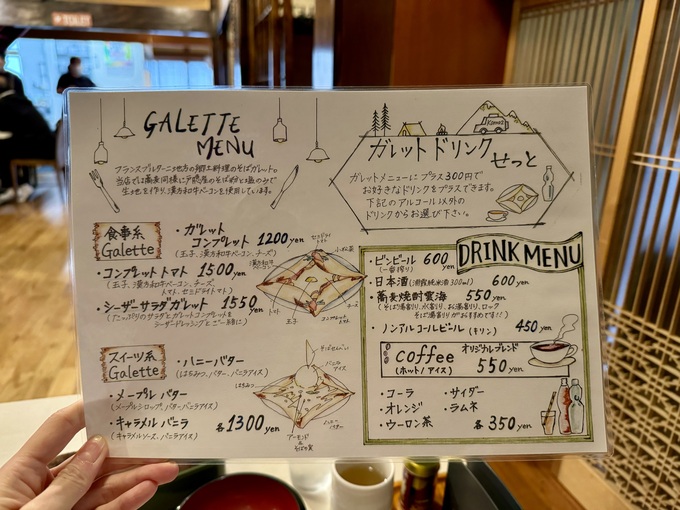 TOILET
GALETTE
MENU
フランスブルターニュ地方の郷土料理のそばガレット。
当店では蕎麦同様に戸隠産のそば粉と塩のみで
生地を作り、漢方和牛ベーコンを使用しています。
食事系
Galette
・ガレット
コンプレット 1200yen
(玉子、漢方和牛ベーコン、チーズ)
・コンプレットトマト 1500yen
(玉子、漢方和牛ベーコン、チーズ
トマト、セミドライトマト)
・シーザーサラダガレット 1550yen
(たっぷりのサラダとガレットコンプレットを
シーザードレッシングとご一緒に)
漢方和牛
ベーコン
トマト
玉子
チーズ
スイーツ系
Galette
・ハニーバター
(はちみつ、バター、バニラアイス)
・メープルバター
(メープルシロップ、バター、バニラアイス)
・キャラメルバニラ
(キャラメルソース、バニラアイス)
各1300yen
そばせんべい
バニラ
アイス
はちみつ
バター
アーモンド
&
そばの実
ガレットドリンク
せっと
ガレットメニューにプラス300円で
お好きなドリンクをプラスできます。
下記のアルコール以外の
ドリンクからお選び下さい。
DRINK MENU
・ビンビール 600yen
(一番搾り)
・日本酒 600yen
・蕎麦焼酎雲海 550yen
(そば湯割り、水割り、お湯割り、ロック
そば湯割りがおすすめです!!)
・ノンアルコールビール(キリン) 450yen
coffee オリジナルブレンド
(ホット/アイス) 550yen
・コーラ ・サイダー
・オレンジ ・ラムネ
・ウーロン茶 各350yen